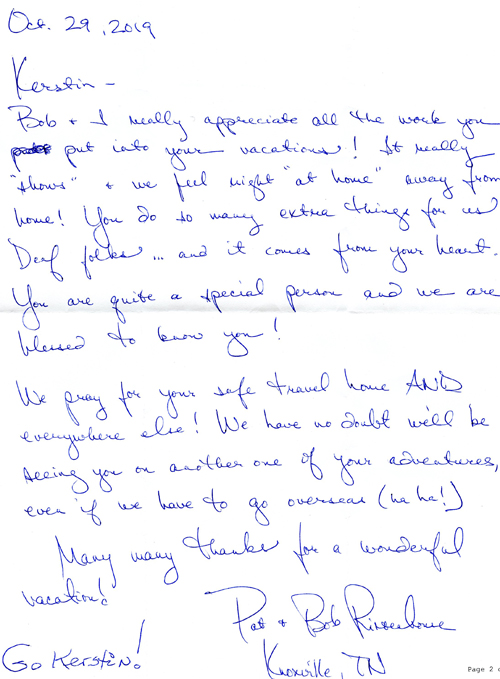 Oct. 29, 2019
Kerstin -
Bob + I really appreciate all the work you
put into your vacations! It really
"shows" + we feel right "at home" away from
home! You do so many extra things for us
Deaf folks ... and it comes from your heart.
You are quite a special person and we are
blessed to know you!
We pray for your safe travel home AND
everywhere else! We have no doubt we'll be
seeing you on another one of your adventures,
even if we have to go overseas (ha ha!)
Many many thanks for a wonderful
vacation!
Pat + Bob
Knoxville, TN
Go Kerstin!
Page 2